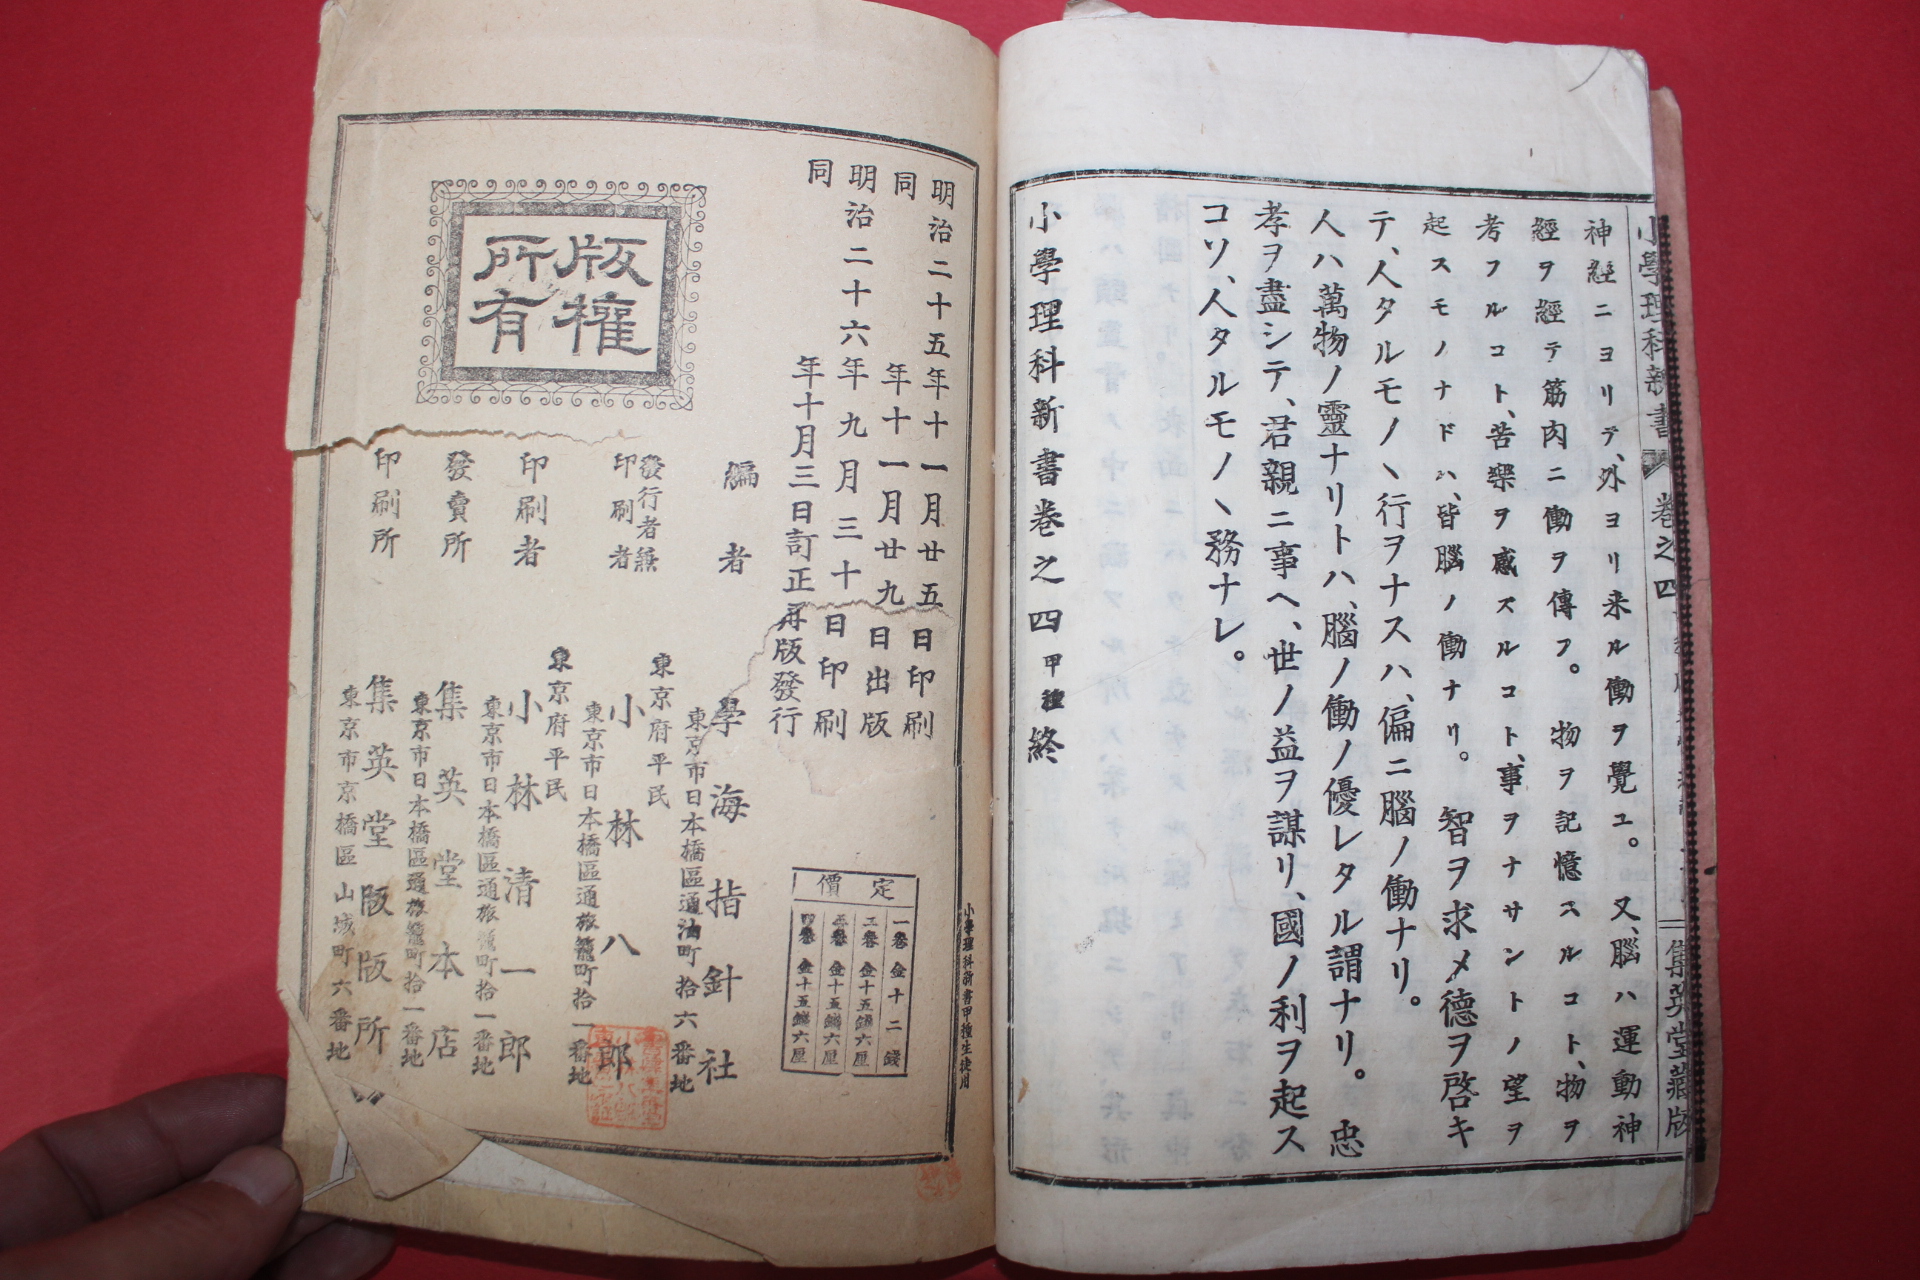 小學理科新書 卷之四
集英堂藏版
神經ニヨリテ、外ヨリ来ル働ヲ覺ユ。又、腦ハ運動神
經ヲ經テ筋肉ニ働ヲ傳フ。物ヲ記憶スルコト、物ヲ
考フルコト、苦樂ヲ感ズルコト、事ヲナサントノ望ヲ
起スモノナドハ、皆腦ノ働ナリ。智ヲ求メ德ヲ啓キ
テ、人タルモノヽ行ヲナスハ、偏ニ腦ノ働ナリ。
人ハ萬物ノ靈ナリトハ、腦ノ働ノ優レタル謂ナリ。忠
孝ヲ盡シテ、君親ニ事ヘ、世ノ益ヲ謀リ、國ノ利ヲ起ス
コソ、人タルモノヽ務ナレ。
小學理科新書卷之四 甲種 終
小學理科新書甲種生徒用
明治二十五年十一月廿五日印刷
同年十一月廿九日出版
明治二十六年九月三十日印刷
同年十月三日訂正再版發行
定價
一卷金十二錢
二卷金十五錢六厘
三卷金十五錢六厘
四卷金十五錢六厘
版權所有
編者 學海指針社
東京市日本橋區通油町拾六番地
東京府平民
發行者兼印刷者 小林八郎
東京市日本橋區通旅籠町拾一番地
東京府平民
印刷者 小林清一郎
東京市日本橋區通旅籠町拾一番地
發賣所 集英堂本店
東京市日本橋區通旅籠町拾一番地
印刷所 集英堂版版所
東京市京橋區山城町六番地